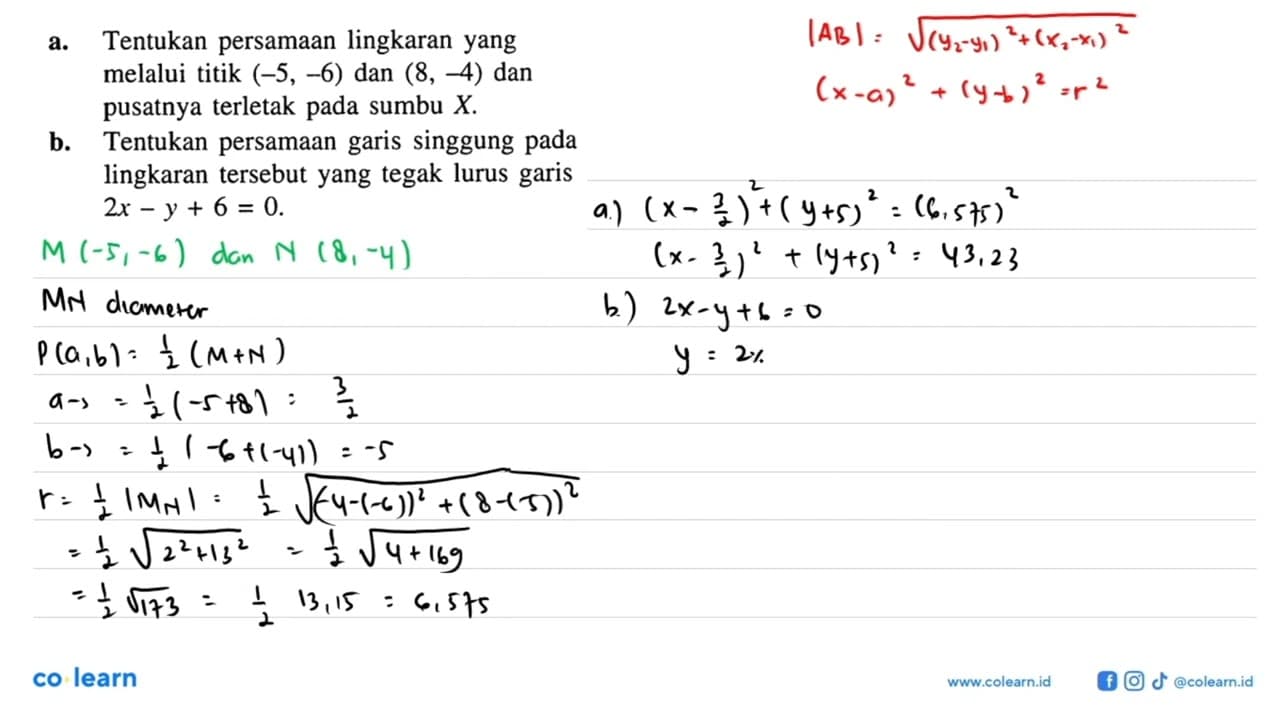 a. Tentukan persamaan lingkaran yang
melalui titik (–5, –6) dan (8, –4) dan
pusatnya terletak pada sumbu X.
b. Tentukan persamaan garis singgung pada
lingkaran tersebut yang tegak lurus garis
2x – y + 6 = 0.
|AB| = √(y₂-y₁)² + (x₂-x₁)²
(x-a)² + (y-b)² = r²
M (-5, -6) dan N (8, -4)
MN diameter
P(a,b) = 1/2 (M+N)
a → = 1/2 (-5+8) = 3/2
b → = 1/2 (-6+(-4)) = -5
r = 1/2 |MN| = 1/2 √(-4-(-6))² + (8-(-5))²
= 1/2 √2²+13² = 1/2 √4+169
= 1/2 √173 = 1/2 13,15 = 6,575
a.) (x - 3/2)² + (y+5)² = (6,575)²
(x - 3/2)² + (y+5)² = 43,23
b.) 2x-y+6 = 0
y = 2x
co learn
www.colearn.id
@colearn.id